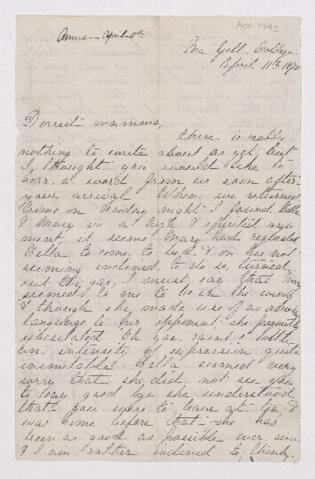 April 11th
April. 11th 1870
Dearest mamma,
there is really
nothing to write about as yet, but
I thought you would like to
hear a word from us soon after
your arrival. When we returned
home on Friday night I found Bella
& Mary in a high & spirited argu
ment, it seems Mary had requested
Bella to come to bed, & on her not
seeming inclined to do so, turned
out the gas, I must say that Mary
seemed to me to be in the wrong
& though she made use of no abusive
language to her opponent she frequently
ejaculated Oh you
an intensity of expression quite
inimitable. Bella seemed very
sorry that she did not see you
to say good bye she understood
that you were to leave at ten, &
was home before that - she has
been as good as possible ever since
& I am rather inclined to think